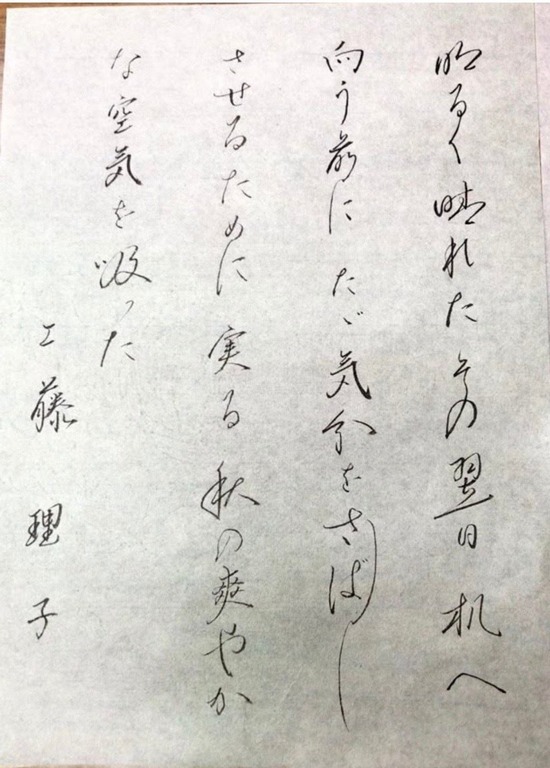 明るく晴れたその翌日 机へ
向う前に ただ気分をさっぱり
させるために 実る秋の爽やか
な空気を吸った
工藤 理子